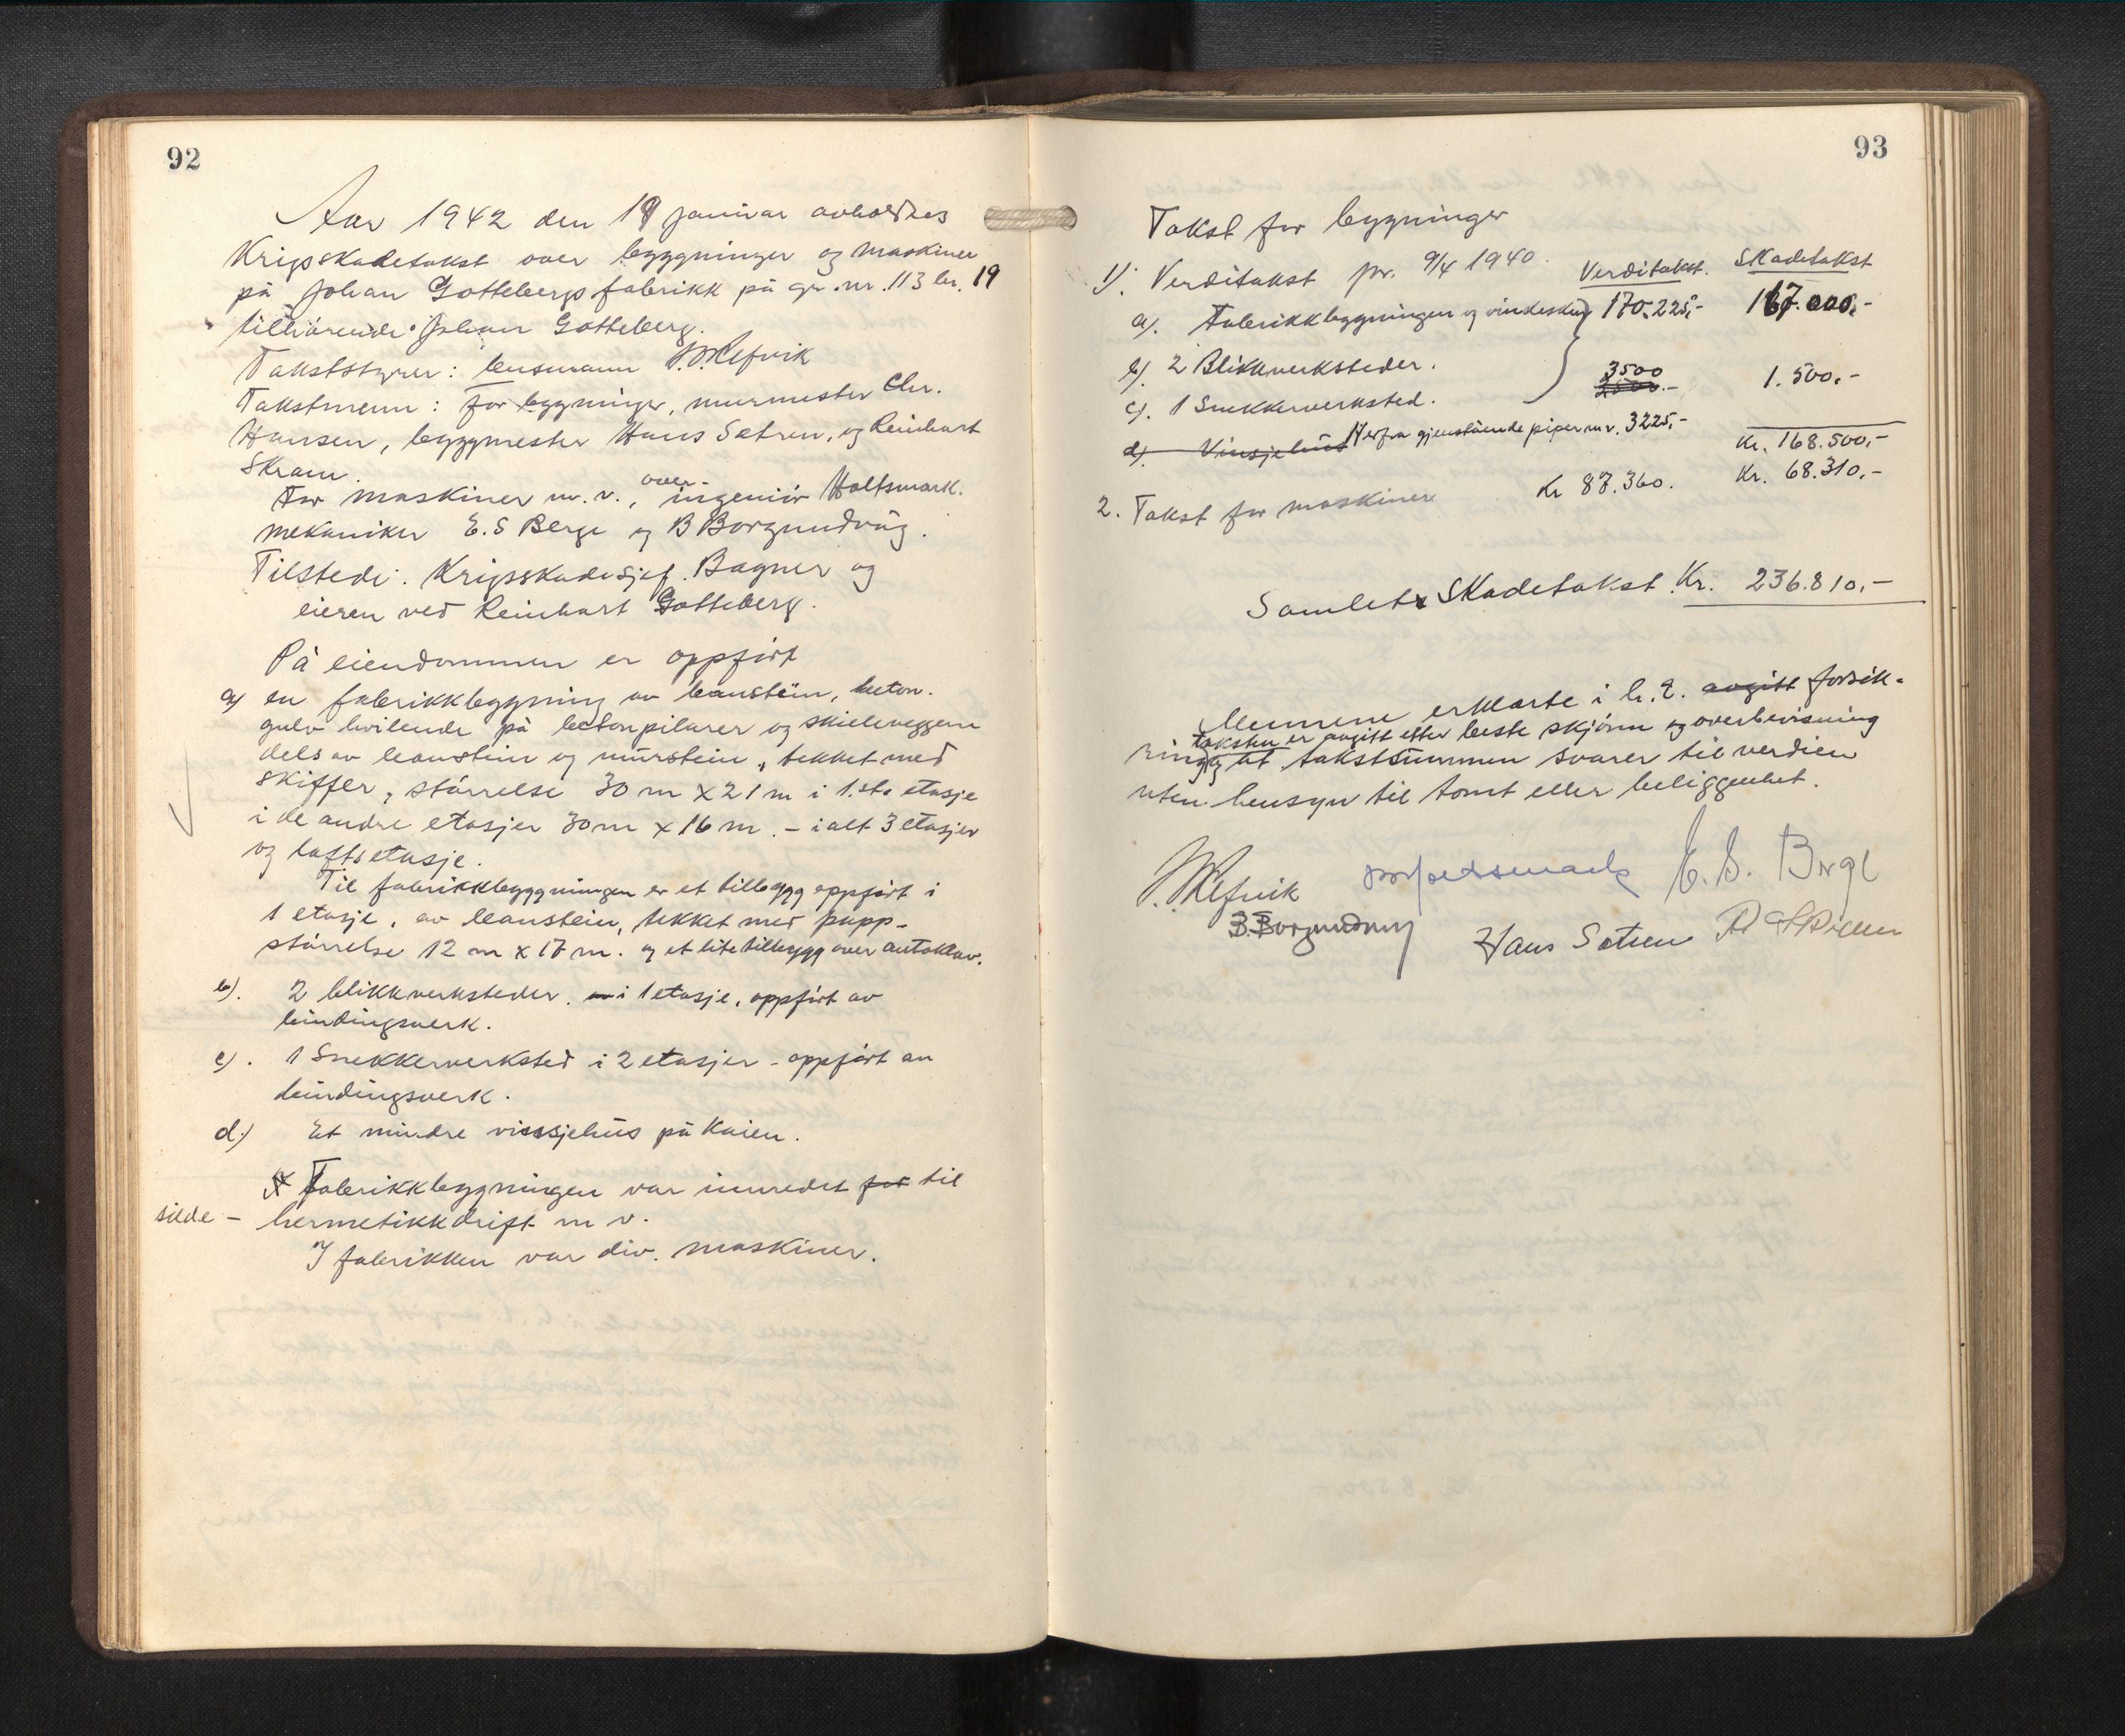 92
Aar 1942 den 19 januar avholdtes
Krigsskadetakst over byggninger og maskiner
på Johan Gottebergs fabrikk på gr. nr. 113 br. 19
tilhörende Johan Gotteberg.
Takststyrer: lensmann P. Refvik
Takstmenn: for bygninger, murmester Chr.
Hansen, byggmester Hans Sætren, og Reinhart
Skram.
For maskiner m. v., over-ingeniör Holtsmark.
mekaniker E. S Berge og B Borgundvåg.
Tilstede: Krigsskadesjef. Bagner og
eieren ved Reinhart Gotteberg.
På eiendommen er oppfört
a) en fabrikkbyggning av leanstein, beton.
gulv hvilende på betonpilarer og skilleveggene
dels av leanstein og murstein, tekket med
skiffer, störrelse 30 m x 21 m i 1.ste etasje
i de andre etasjer 30 m x 16 m. - ialt 3 etasjer
og loftsetasje.
Til fabrikkbyggningen er et tilbygg oppfört i
1 etasje, av leanstein, tekket med papp-
störrelse 12 m x 17 m. og et lite tilbygg over autoklav.
b). 2 blikkverksteder. i 1 etasje, oppfört av
bindingsverk.
c). 1 Snekkerverksted i 2 etasjer - oppfört av
bindingsverk.
d.) Et mindre vinsjehus på kaien.
Fabrikkbygningen var innredet for til
silde - hermetikkdrift m v.
I fabrikken var div. maskiner.
93
Takst for bygninger
1). Verditakst pr. 9/4 1940. Verditakst. Skadetakst
a). Fabrikkbyggningen og vindeskur 170.225,- 167.000,-
b). 2 Blikkverksteder. 3500 1.500,-
c). 1 Snekkerverksted.
d). Vinsjehus Herfra gjenstående piper m. v. 3225,- Kr. 168.500,-
2. Takst for maskiner Kr 87.360. Kr. 68.310,-
Samlet Skadetakst Kr. 236.810,-
Mennene erklærte i h. t. avgitt forsik-
taksten er avgitt etter beste skjönn og overbevisning
ring og at takstsummen svarer til verdien
uten hensyn til tomt eller beliggenhet.
P. Refvik E. S. Berge
B. Borgundvåg Hans Sætren R Skram